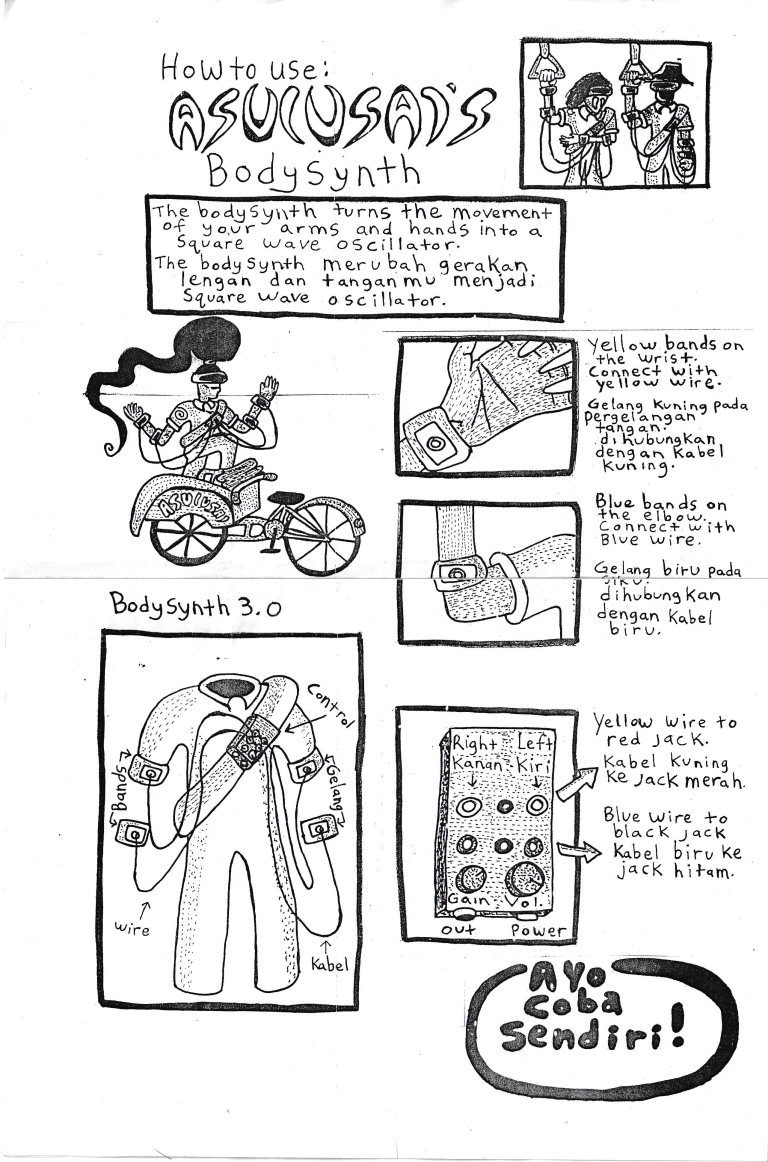 How to use:
ASULUSAI'S
BodySynth
The bodysynth turns the movement
of your arms and hands into a
Square wave oscillator.
The bodysynth merubah gerakan
lengan dan tanganmu menjadi
Square wave oscillator.
Yellow bands on
the wrist.
Connect with
yellow wire.
Gelang kuning pada
pergelangan
tangan.
dihubungkan
dengan Kabel
Kuning.
Blue bands on
the elbow.
Connect with
Blue wire.
Gelang biru pada
siku.
dihubungkan
dengan Kabel
biru.
BodySynth 3.0
Control
Bands
Gelang
wire
Kabel
Right Left
Kanan Kiri
Gain Vol.
Out Power
Yellow wire to
red jack.
Kabel Kuning
Ke Jack merah.
Blue wire to
black jack
Kabel biru Ke
jack hitam.
Ayo
coba
sendiri!